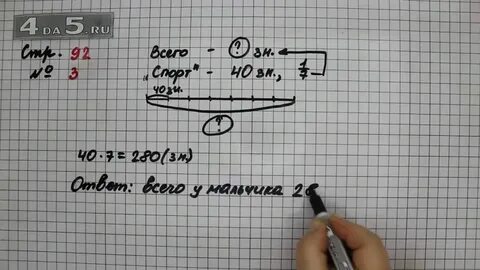 4DA5.RU
Стр. 92
№ 3
Всего - ? зн.
"Спорт" - 40 зн., 1/7
40 зн.
?
40 · 7 = 280 (зн.)
Ответ: всего у мальчика 28